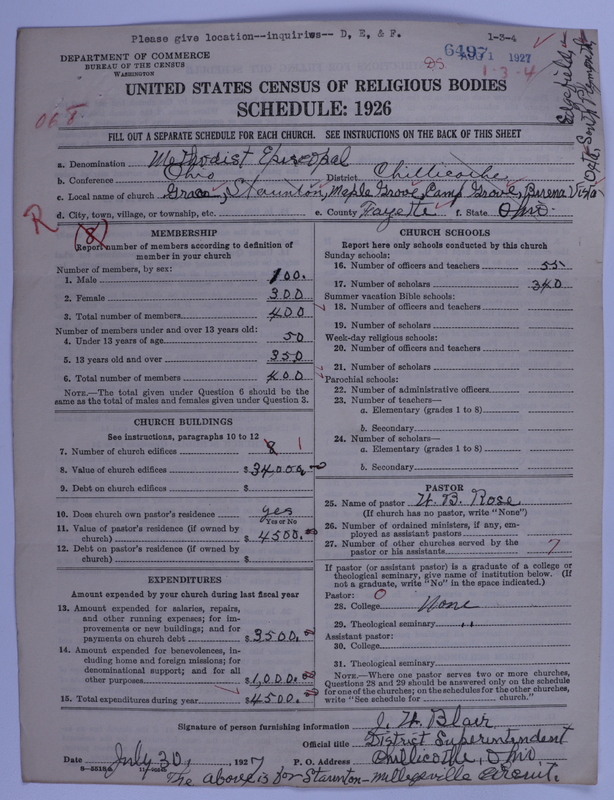 Please give location--inquiries-- D, E, & F.
1-3-4
DEPARTMENT OF COMMERCE
BUREAU OF THE CENSUS
WASHINGTON
DS.
6497
AUG 1 1927
1-3-4
UNITED STATES CENSUS OF RELIGIOUS BODIES
SCHEDULE: 1926
FILL OUT A SEPARATE SCHEDULE FOR EACH CHURCH. SEE INSTRUCTIONS ON THE BACK OF THIS SHEET
a. Denomination Methodist Episcopal
b. Conference Ohio District Chillicothe
c. Local name of church Grace, Staunton, Maple Grove, Camp Grove, Buena Vista
d. City, town, village, or township, etc. e. County Fayette f. State Ohio.
R
(8)
MEMBERSHIP
Report number of members according to definition of member in your church
Number of members, by sex:
1. Male 100.
2. Female 300
3. Total number of members 400
Number of members under and over 13 years old:
4. Under 13 years of age 50
5. 13 years old and over 350
6. Total number of members 400
NOTE.—The total given under Question 6 should be the same as the total of males and females given under Question 3.
CHURCH BUILDINGS
See instructions, paragraphs 10 to 12
7. Number of church edifices 8 1
8. Value of church edifices $34,000.00
9. Debt on church edifices $
10. Does church own pastor's residence yes
Yes or No
11. Value of pastor's residence (if owned by church) $4500.00
12. Debt on pastor's residence (if owned by church) $
EXPENDITURES
Amount expended by your church during last fiscal year
13. Amount expended for salaries, repairs, and other running expenses; for improvements or new buildings; and for payments on church debt $3500.00
14. Amount expended for benevolences, including home and foreign missions; for denominational support; and for all other purposes $1,000.00
15. Total expenditures during year $4500.00
CHURCH SCHOOLS
Report here only schools conducted by this church
Sunday schools:
16. Number of officers and teachers 55
17. Number of scholars 340
Summer vacation Bible schools:
18. Number of officers and teachers
19. Number of scholars
Week-day religious schools:
20. Number of officers and teachers
21. Number of scholars
Parochial schools:
22. Number of administrative officers
23. Number of teachers—
a. Elementary (grades 1 to 8)
b. Secondary
24. Number of scholars—
a. Elementary (grades 1 to 8)
b. Secondary
PASTOR
25. Name of pastor W. B. Rose
(If church has no pastor, write "None")
26. Number of ordained ministers, if any, employed as assistant pastors
27. Number of other churches served by the pastor or his assistants 7
If pastor (or assistant pastor) is a graduate of a college or theological seminary, give name of institution below. (If not a graduate, write "No" in the space indicated.)
Pastor: 0
28. College None
29. Theological seminary "
Assistant pastor:
30. College
31. Theological seminary
NOTE.—Where one pastor serves two or more churches, Questions 28 and 29 should be answered only on the schedule for one of the churches; on the schedules for the other churches, write "See schedule for church."
Signature of person furnishing information J. W. Blair
Official title District Superintendent
Date July 30, 1927 P. O. Address Chillicothe, Ohio.
The above is for Staunton-Milledgeville Circuit.